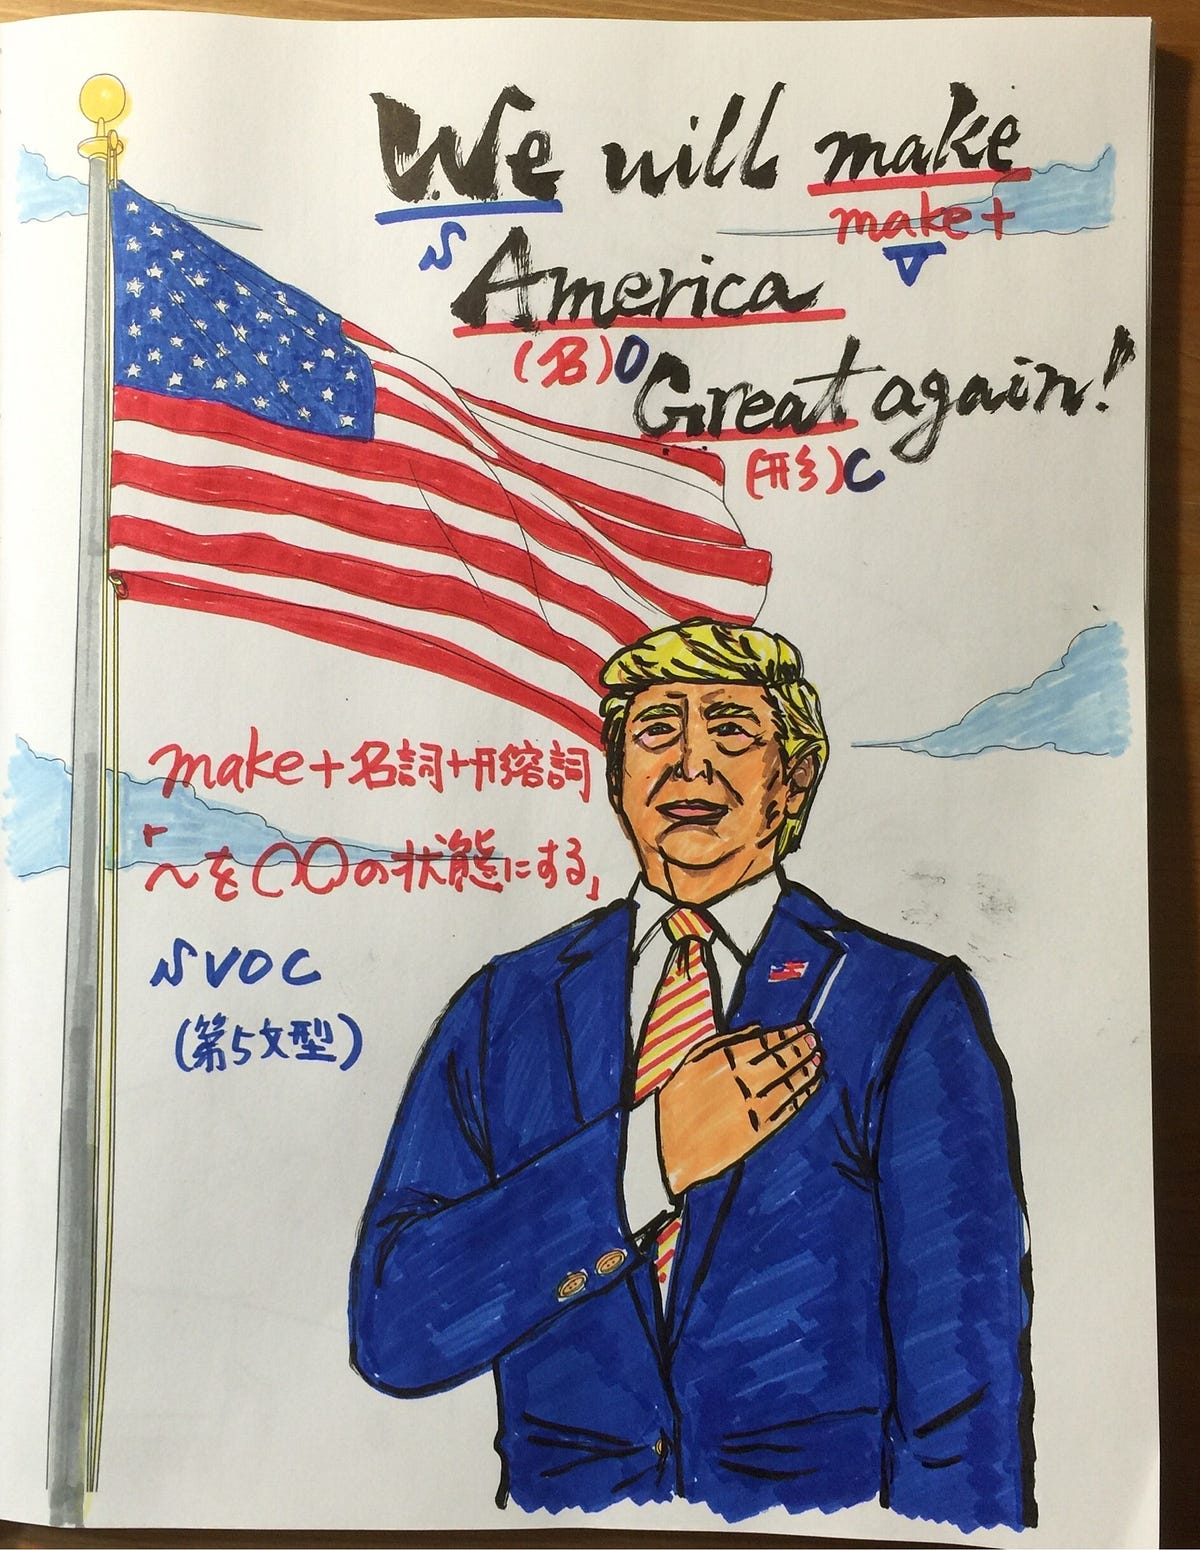 We will make
make+
S V
America
(名)O
Great again!
(形)C
make+名詞+形容詞
「～を〇〇の状態にする」
SVOC
(第5文型)